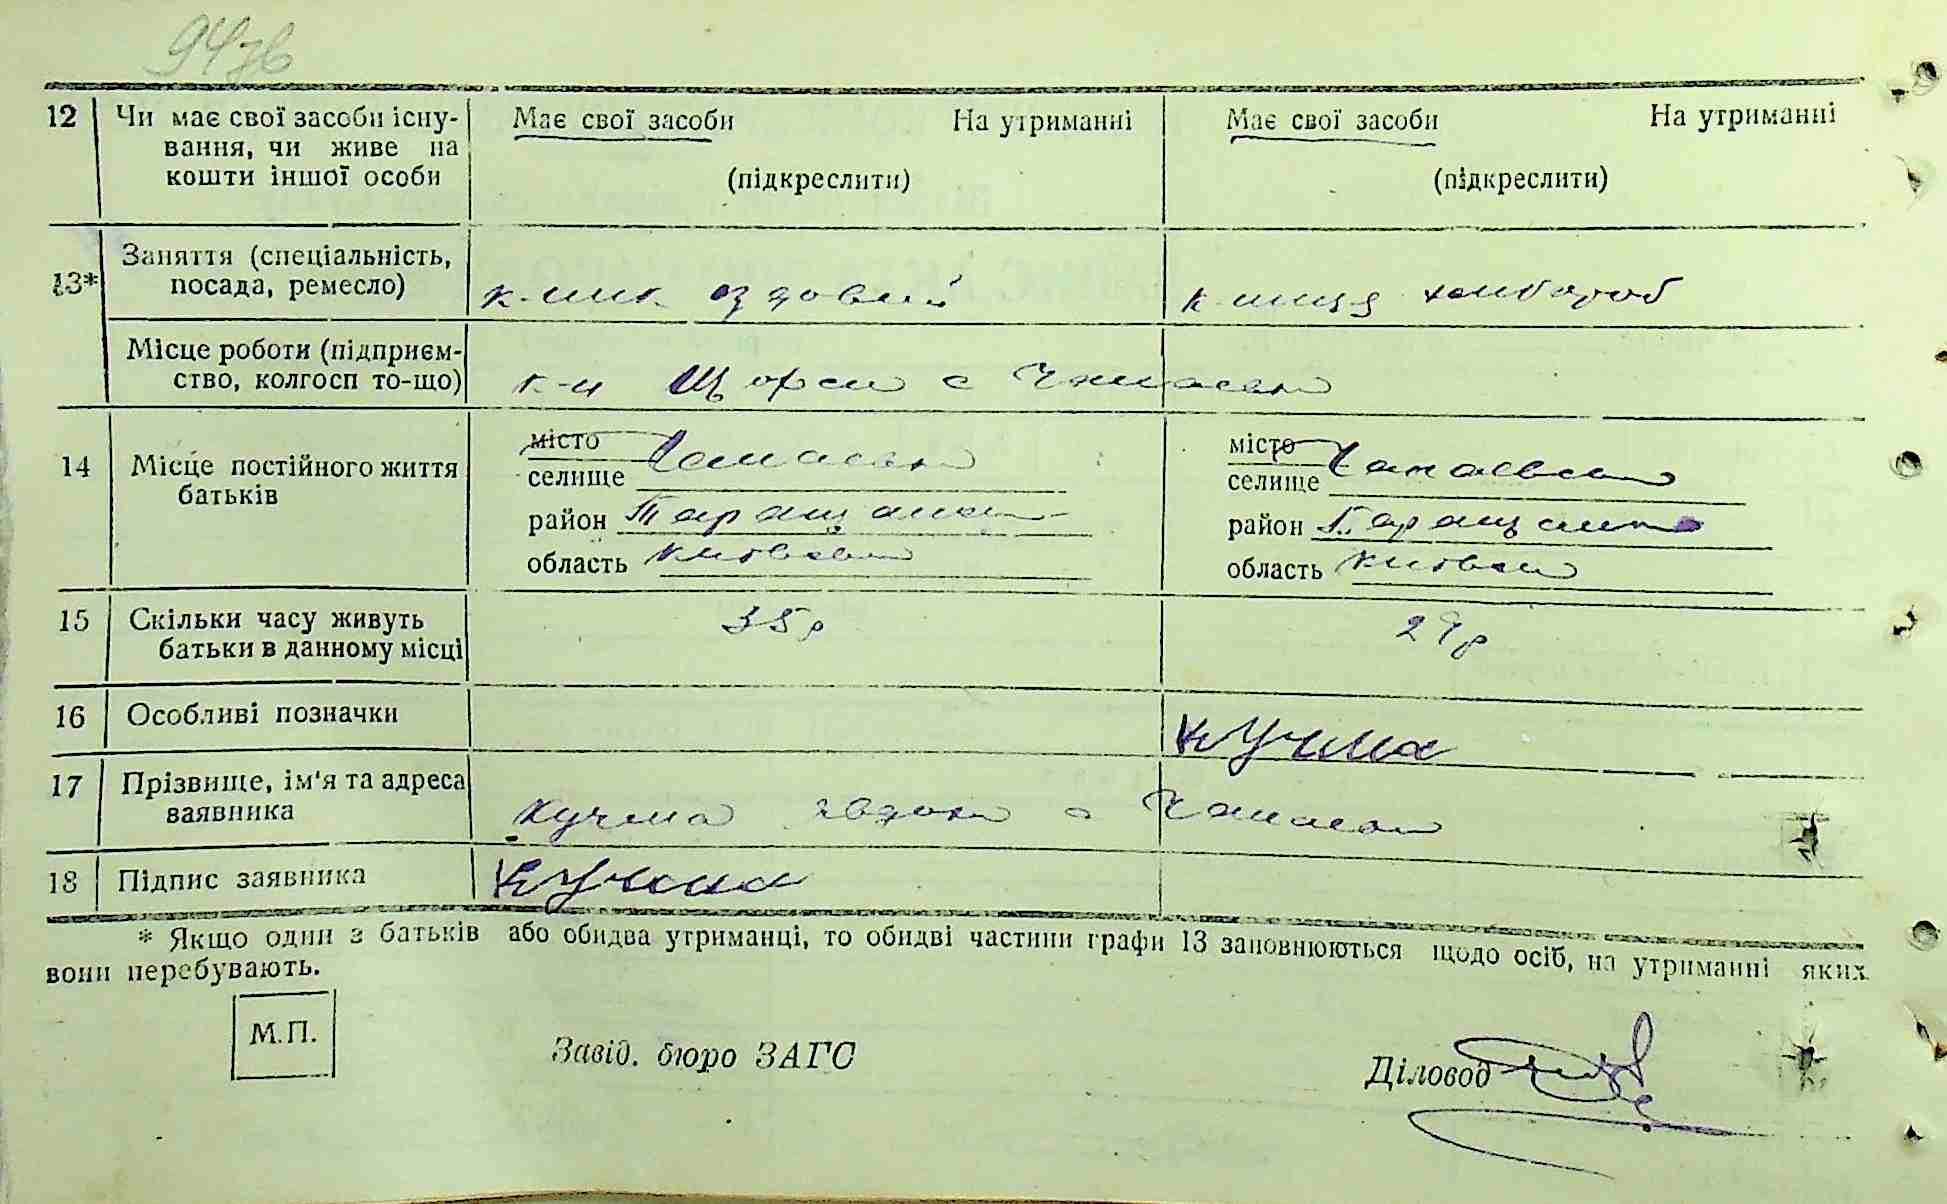 94зв
12 Чи має свої засоби існу- Має свої засоби На утриманні Має свої засоби На утриманні
вання, чи живе на
кошти іншої особи (підкреслити) (підкреслити)
13* Заняття (спеціальність,
посада, ремесло) к-ник їздовий к-ниця хлібороб
Місце роботи (підприєм-
ство, колгосп то-що) к-п Щорса с
14 Місце постійного життя батьків
місто місто
селище селище
район Таращанськ район Таращанськ
область Київськ область Київськ
15 Скільки часу живуть 35 р 29 р
батьки в данному місці
16 Особливі позначки Кучма
17 Прізвище, ім'я та адреса
заявника Кучма с
18 Підпис заявника Кучма
* Якщо один з батьків або обидва утриманці, то обидві частини графи 13 заповнюються щодо осіб, на утриманні яких
вони перебувають.
М.П.
Завід. бюро ЗАГС Діловод